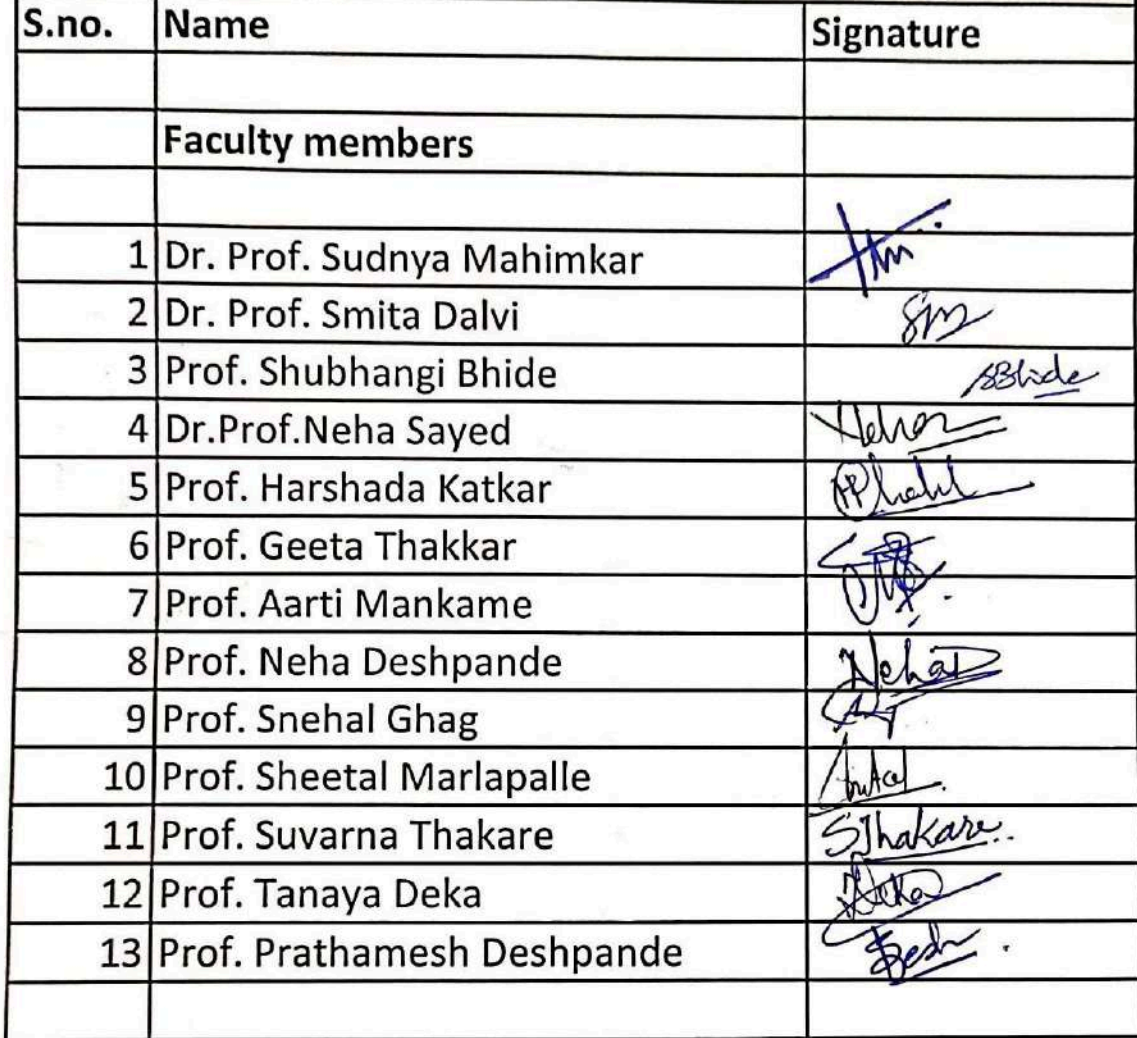 S.no. Name Signature
Faculty members
1 Dr. Prof. Sudnya Mahimkar
2 Dr. Prof. Smita Dalvi
3 Prof. Shubhangi Bhide SBhide
4 Dr.Prof.Neha Sayed
5 Prof. Harshada Katkar
6 Prof. Geeta Thakkar
7 Prof. Aarti Mankame
8 Prof. Neha Deshpande NehaD
9 Prof. Snehal Ghag
10 Prof. Sheetal Marlapalle
11 Prof. Suvarna Thakare SThakare
12 Prof. Tanaya Deka
13 Prof. Prathamesh Deshpande